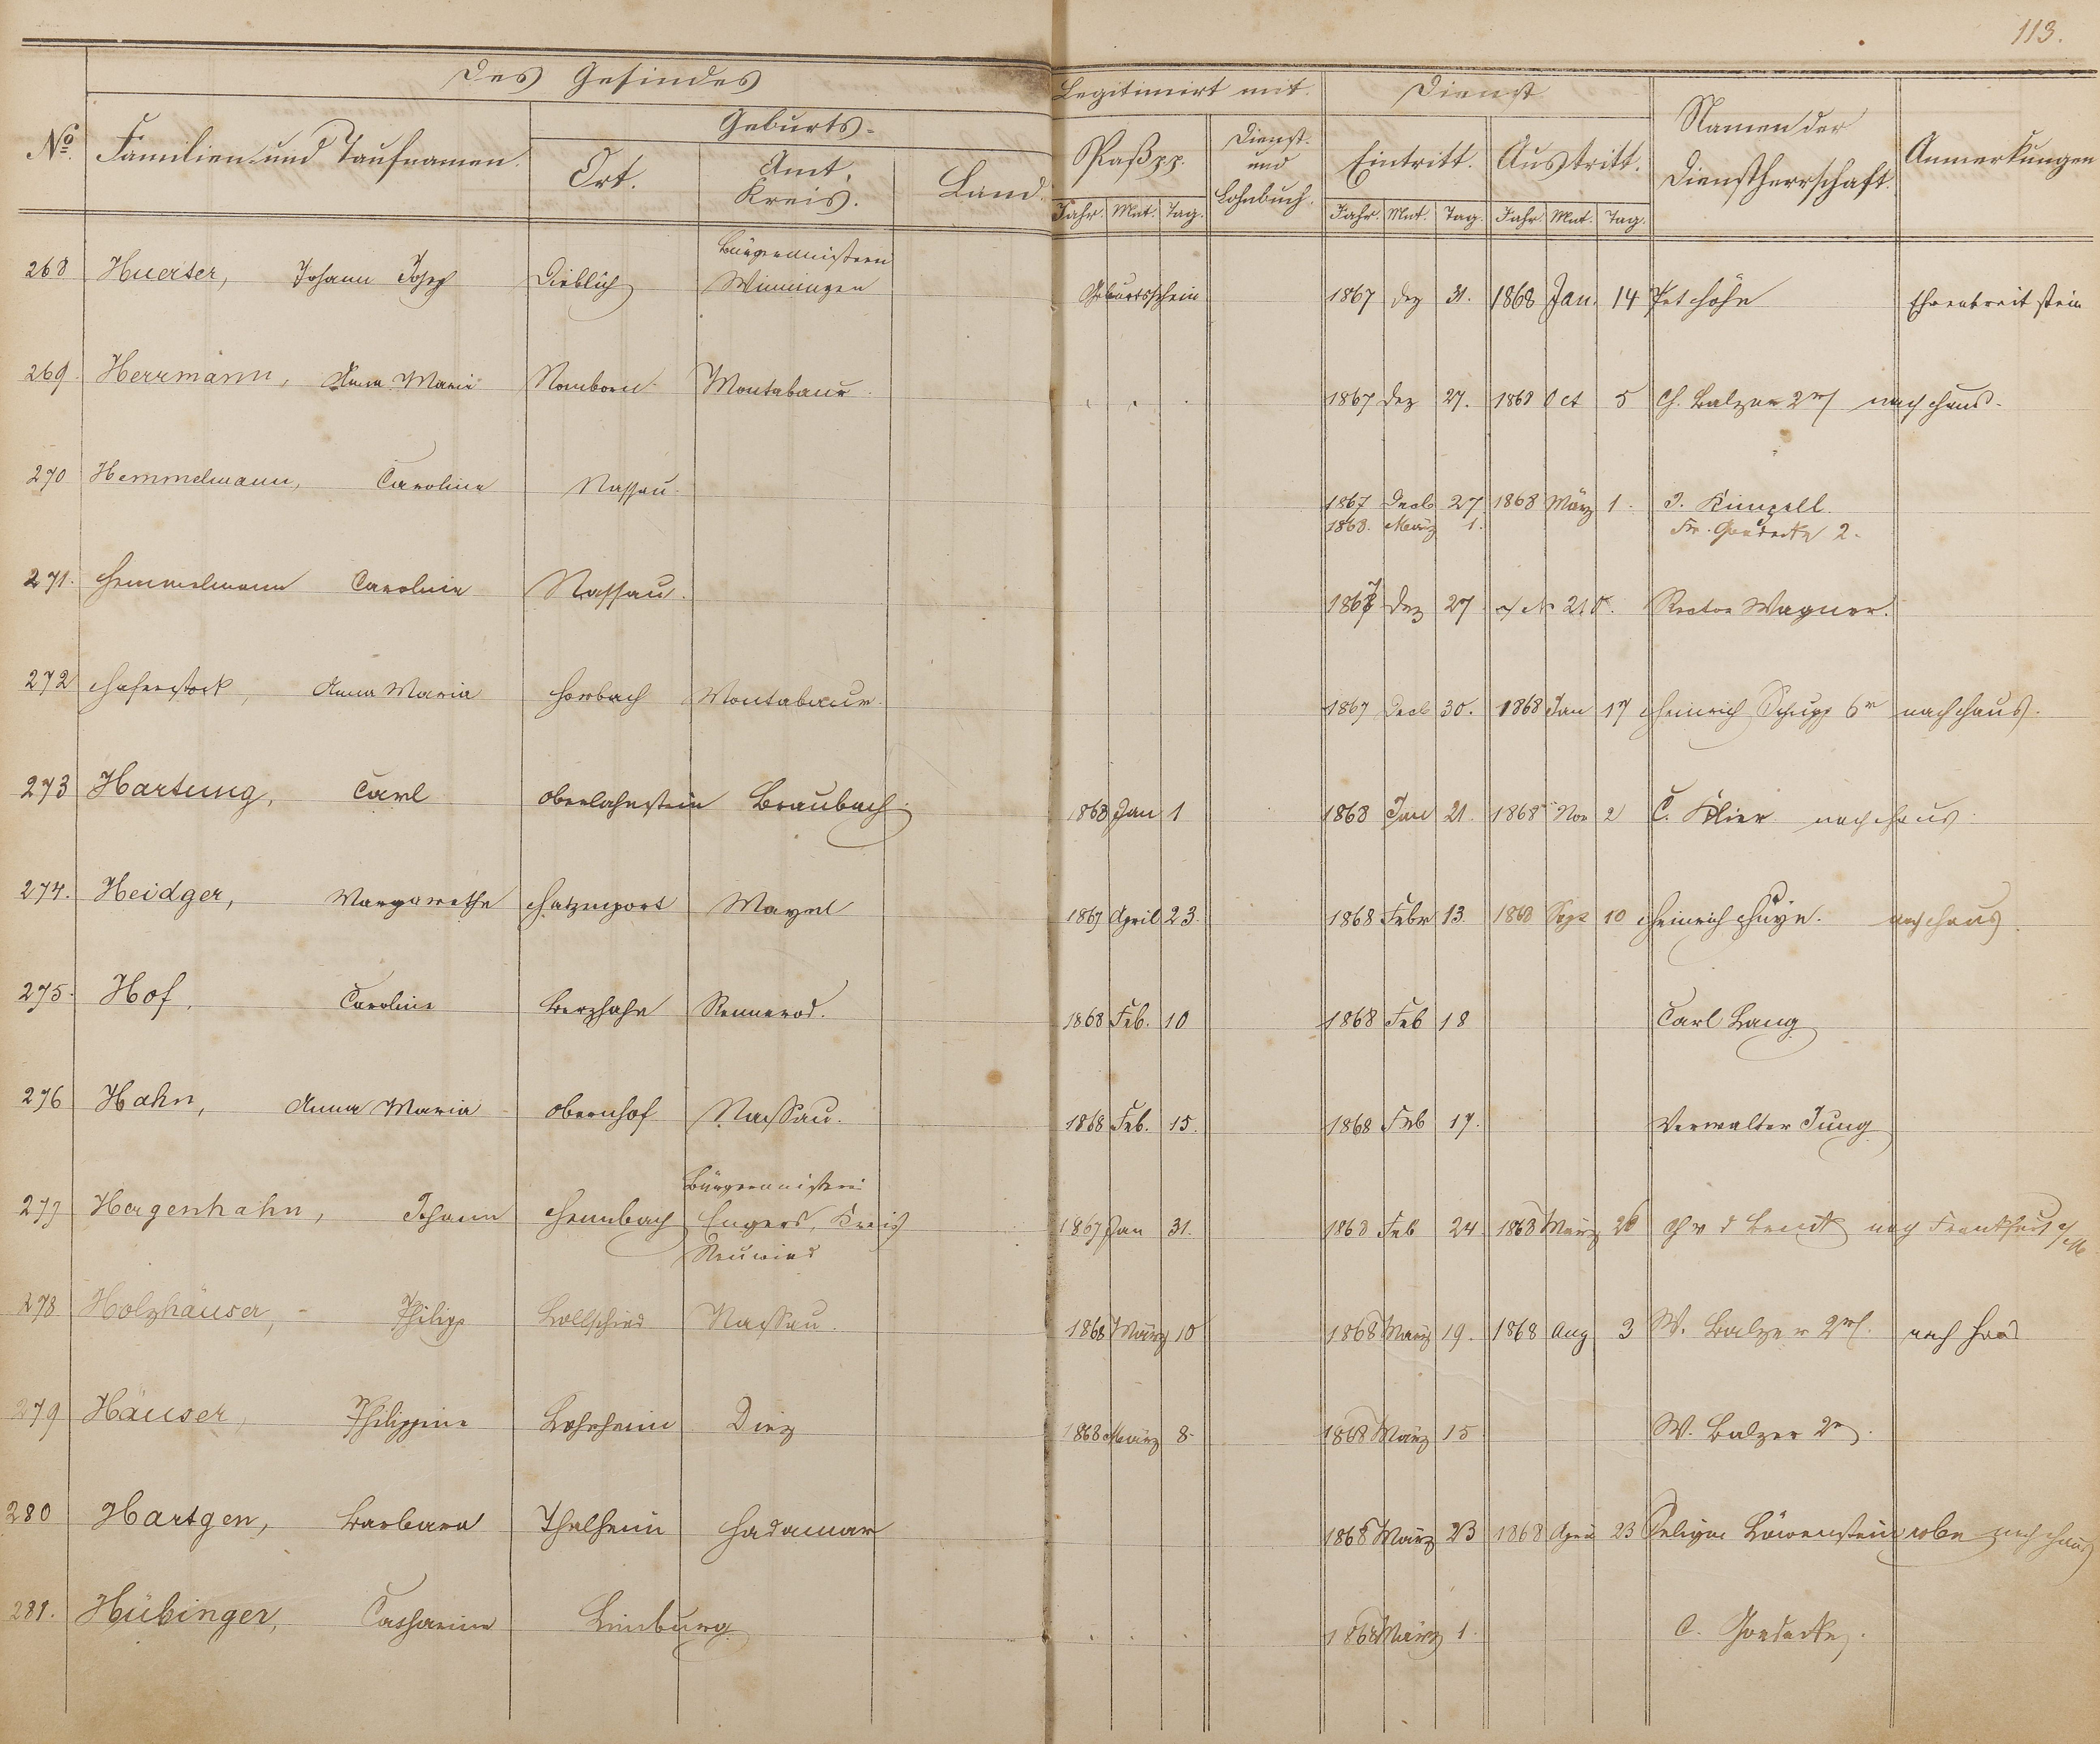 113.
Des Gesindes
Legitimirt mit.
Dienst
No.
Familien- und Taufnamen.
Geburts-
Ort.
Amt, Kreis.
Land.
Paß pp.
Dienst- und Lohnbuch.
Eintritt.
Austritt.
Namen der Dienstherrschaft.
Anmerkungen
Jahr. Mnt. Tag.
Jahr. Mnt. Tag.
Jahr. Mnt. Tag.
268 Huerter, Johann Josef Dieblich Bürgermeisterei Winningen Geburtsschein 1867 Dez 31. 1868 Jan. 14 Pet Höhn Ehrenbreitstein
269. Herrmann, Anna Maria Nomborn Montabaur. 1867 Dez 27. 1868 Oct 5 Balzer 2r nach Haus.
270 Hemmelmann, Caroline Nassau. 1867 Decb 27 1868 März 1. J. Künzell.
1868. März 1. Fr. Goedecke 2.
271. Hemmelmann Caroline Nassau. 1867 Dez 27 Rector Wagner.
272 Hafenstock, Anna Maria Horbach Montabaur. 1867 Decb 30. 1868 Jan 17 Heinrich Schupp 6r nach Haus.
273 Hartung, Carl Oberlahnstein Braubach. 1868 Jan 1 1868 Jan 21. 1868 Nov 2 C. Flier nach Haus.
274. Heidger, Margarethe Hatzenport Mayen 1867 April 23. 1868 Febr 13. 1868 Sept 10 Heinrich nach Haus.
275. Hof, Caroline Berzhahn Rennerod. 1868 Feb. 10 1868 Feb 18 Carl Lang
276 Hahn, Anna Maria Obernhof Nassau. 1868 Feb. 15. 1868 Feb 17. Verwalter Jung
277 Hagenhahn, Johann Heimbach Bürgermeisterei Engers, Kreis Neuwied 1867 Jan 31. 1868 Feb 24 1868 März 26 nach Frankfurt a/M
278 Holzhäuser, Philipp Lollschied Nassau. 1868 März 10 1868 März 19. 1868 Aug 3 W. Balzer 2r. nach Haus
279 Häuser, Philippine Lohrheim Diez 1868 März 8. 1868 März 15 W. Balzer 2r.
280 Hartgen, Barbara Thalheim Hadamar 1868 März 23 1868 April 23 Seligm Löwenstein Wbe nach Haus
281. Hübinger, Catharine Limburg 1868 März 1. C. Goedecke.